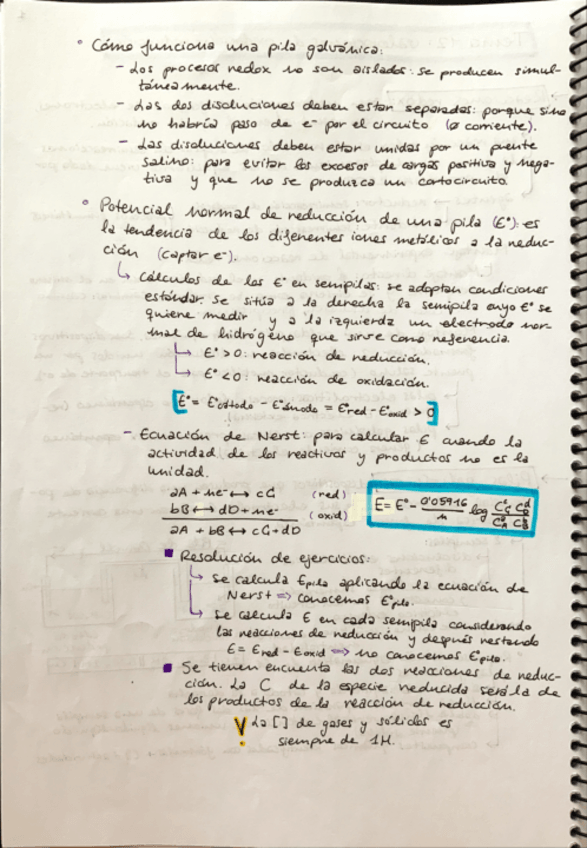 ° Cómo funciona una pila galvánica:
- Los procesos redox no son aislados: se producen simul-
táneamente.
- Las dos disoluciones deben estar separadas: porque sino
no habría paso de e⁻ por el circuito (ø corriente).
- Las disoluciones deben estar unidas por un puente
salino: para evitar los excesos de cargas positiva y nega-
tiva y que no se produzca un cortocircuito.
° Potencial normal de reducción de una pila (E°): es
la tendencia de los diferentes iones metálicos a la reduc-
ción (captar e⁻).
↳ Cálculos de los E° en semipilas: se adoptan condiciones
estándar. Se sitúa a la derecha la semipila cuyo E° se
quiere medir y a la izquierda un electrodo nor-
mal de hidrógeno que sirve como referencia.
↳ E° > 0: reacción de reducción.
↳ E° < 0: reacción de oxidación.
[E° = E°cátodo - E°ánodo = E°red - E°oxid > 0]
- Ecuación de Nerst: para calcular E cuando la
actividad de los reactivos y productos no es la
unidad.
aA + ne⁻ ↔ cC (red)
bB ↔ dD + ne⁻ (oxid)
aA + bB ↔ cC + dD
E = E° - 0'05916/n log C^c_C C^d_D / C^a_A C^b_B
■ Resolución de ejercicios:
↳ Se calcula Epila aplicando la ecuación de
Nerst ⇒ conocemos E°pila.
↳ Se calcula E en cada semipila considerando
las reacciones de reducción y después restando
E = Ered - Eoxid ⇒ no conocemos E°pila.
■ Se tienen encuenta las dos reacciones de reduc-
ción. La C de la especie reducida será la de
los productos de la reacción de reducción.
! La [] de gases y sólidos es
siempre de 1M.